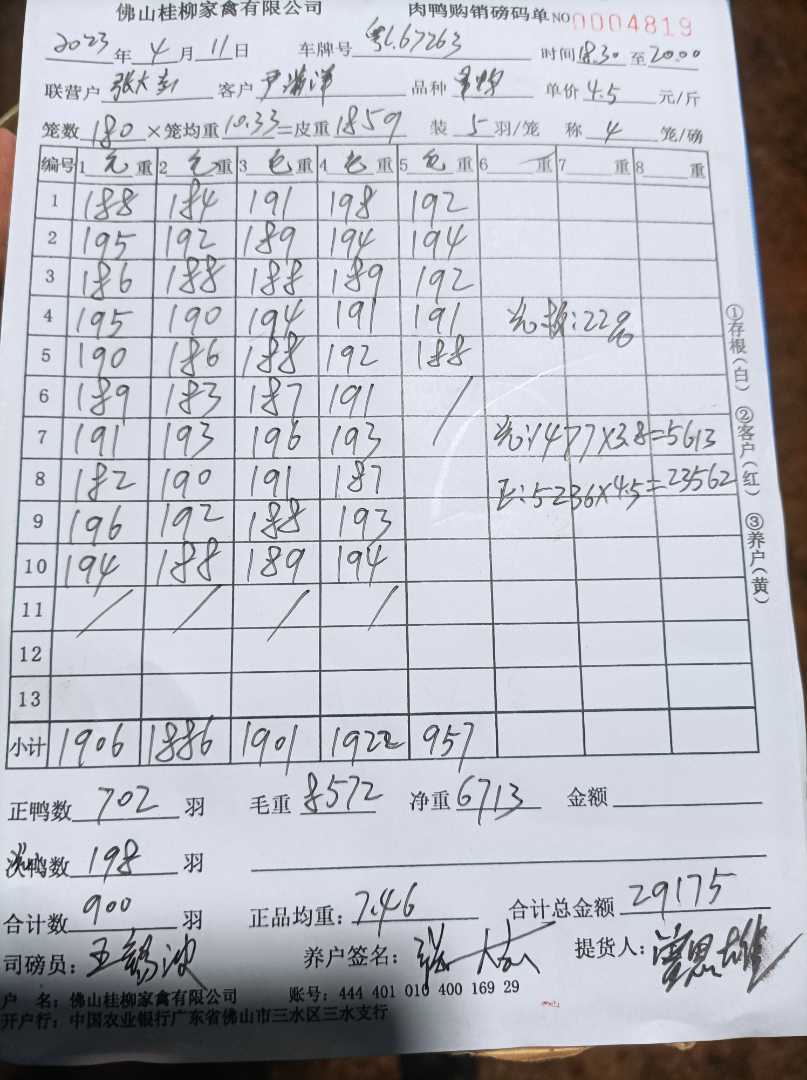 佛山桂柳家禽有限公司 肉鸭购销磅码单 NO 0004819
2023年4月11日 车牌号 粤L67263 时间 18.30 至 20.00
联营户 张大 客户 尹海洋 品种 单价 4.5 元/斤
笼数 180 ×笼均重 10.33 =皮重 1859 装 5 羽/笼 称 4 笼/磅
编号 1 毛 重 2 毛 重 3 毛 重 4 毛 重 5 毛 重 6 重 7 重 8 重
1 188 184 191 198 192
2 195 192 189 194 194
3 186 188 188 189 192
4 195 190 194 191 191 22%
5 190 186 188 192 188
6 189 183 187 191 /
7 191 193 196 193 1477×3.8=5613
8 182 190 191 187 5236×4.5=23562
9 196 192 188 193
10 194 188 189 194
11 / / / /
12
13
小计 1906 1886 1901 1922 957
①存根(白) ②客户(红) ③养户(黄)
正鸭数 702 羽 毛重 8572 净重 6713 金额
鸭数 198 羽
合计数 900 羽 正品均重: 7.46 合计总金额 29175
司磅员: 王锡波 养户签名: 张 提货人:
户 名: 佛山桂柳家禽有限公司 账号: 444 401 010 400 169 29
开户行: 中国农业银行广东省佛山市三水区三水支行